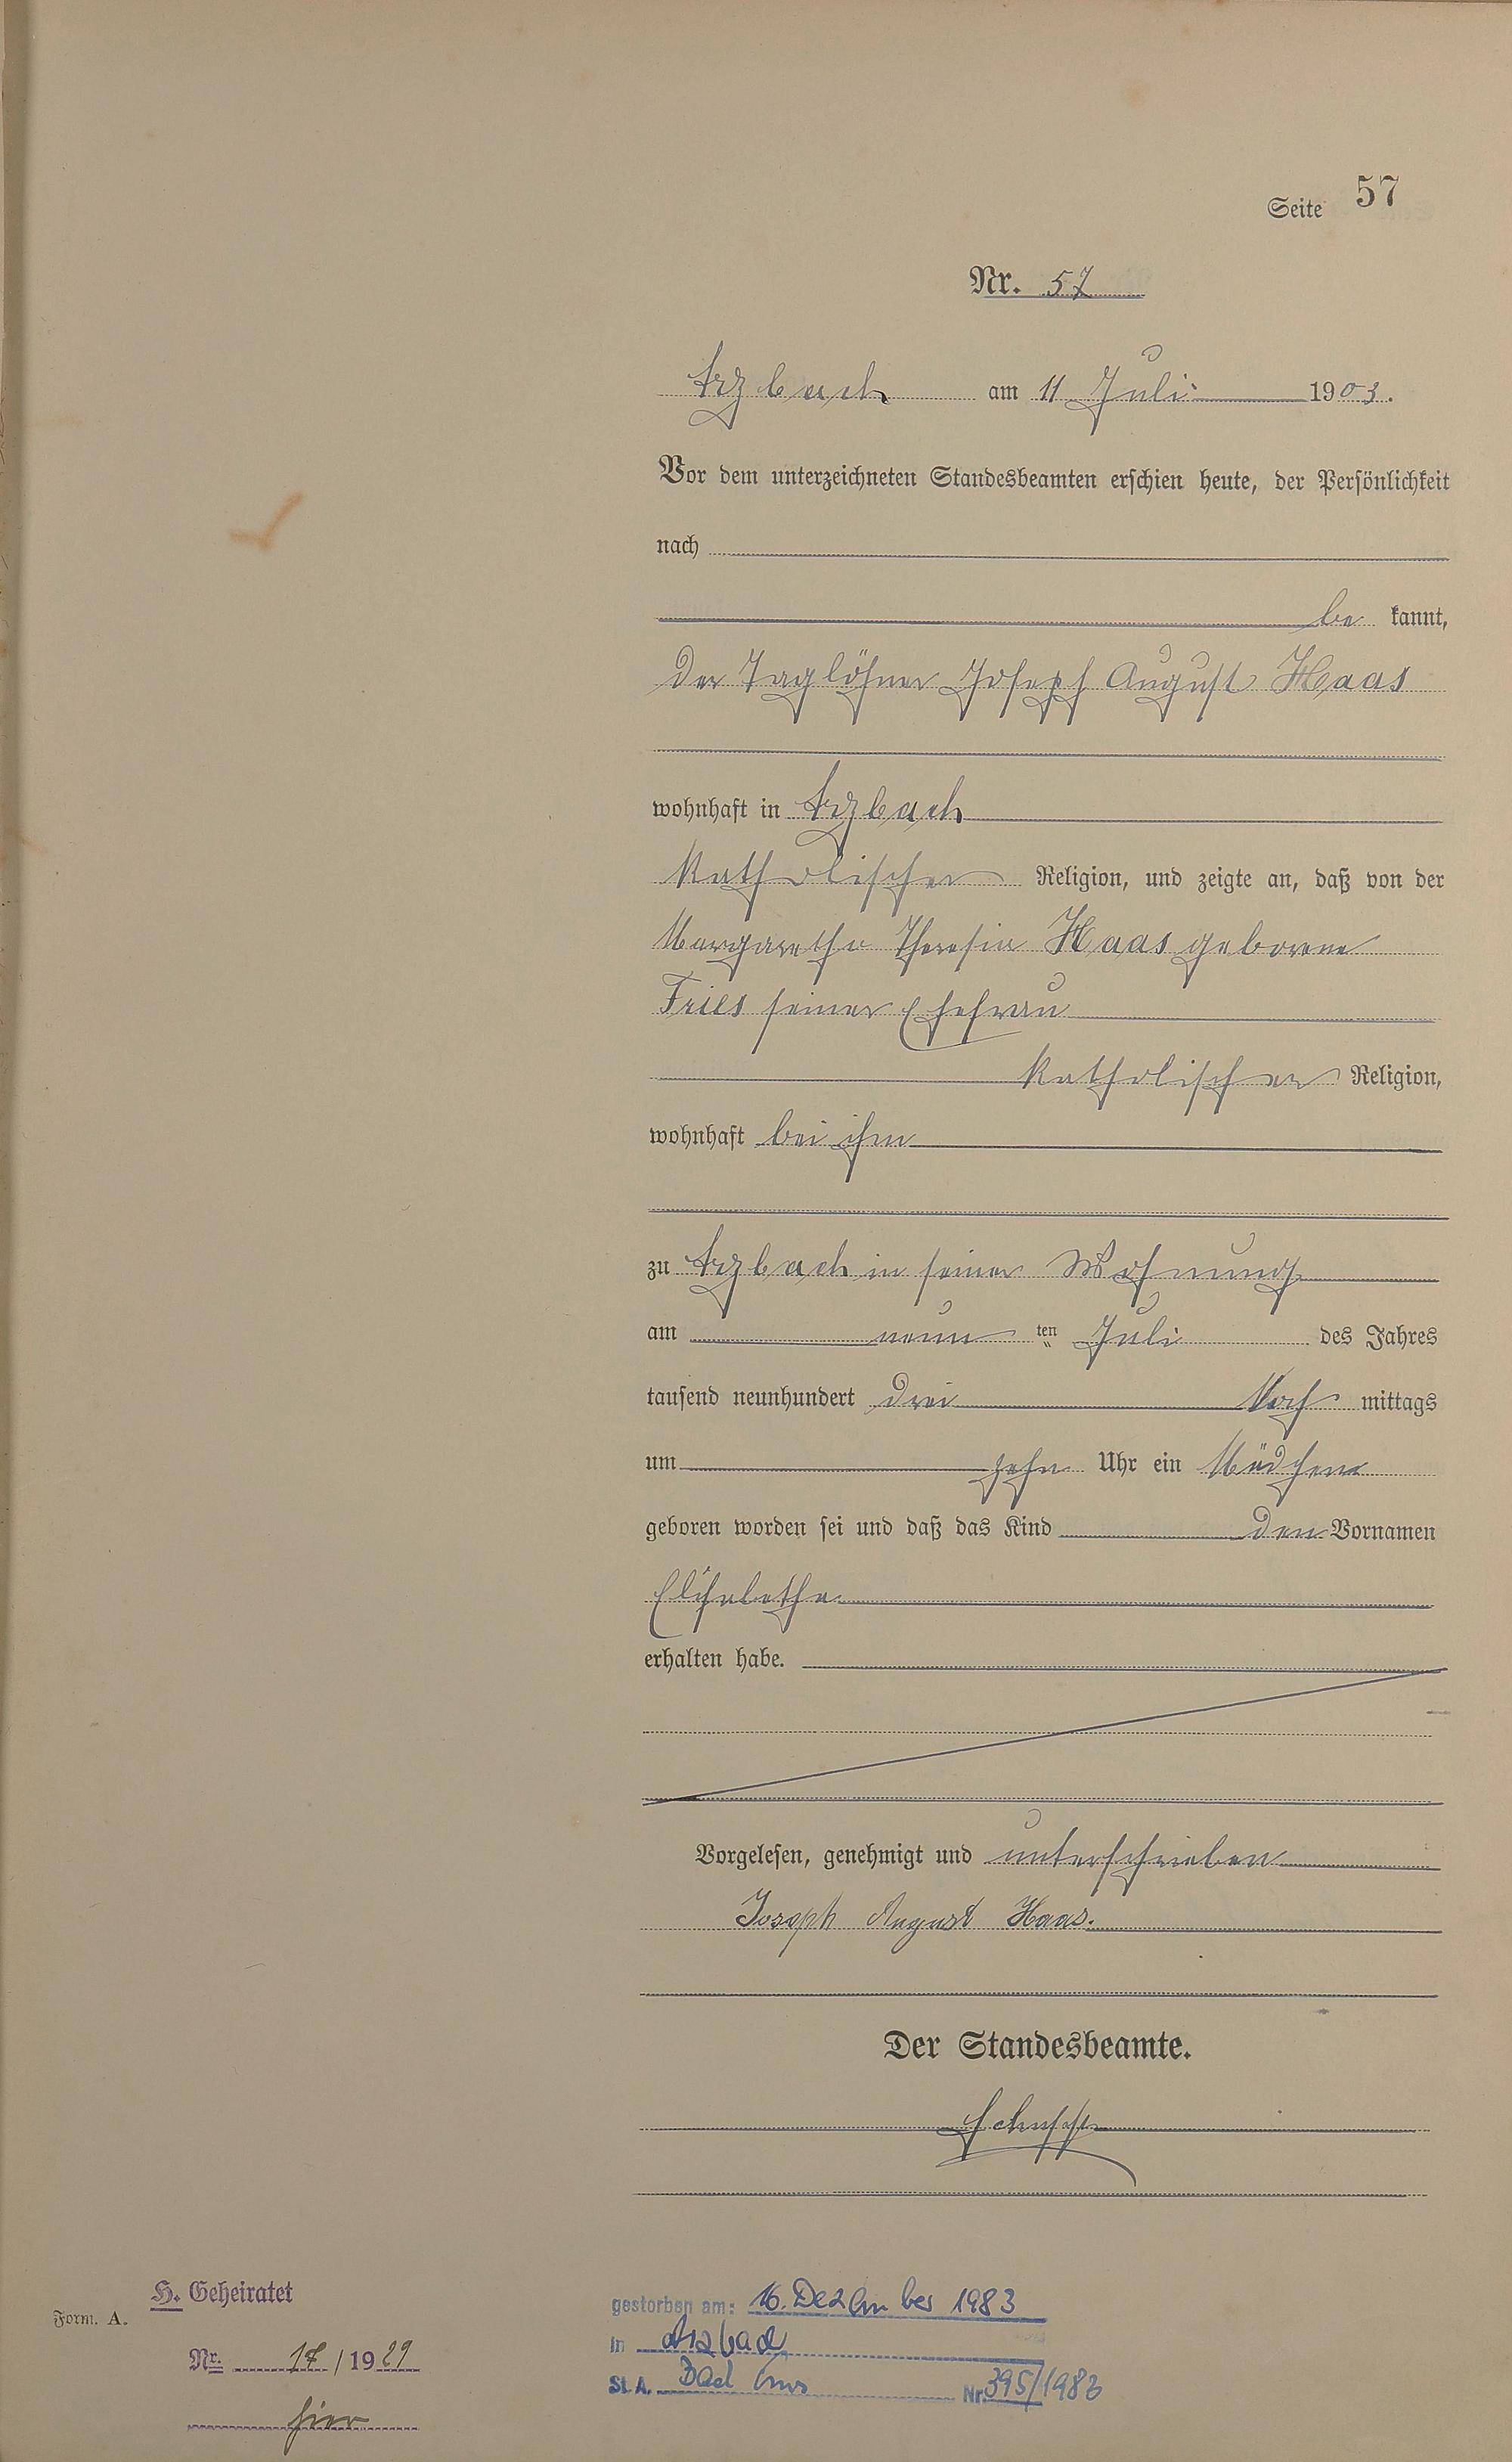 Seite 57
Nr. 57
Arzbach am 11 Juli 1903.
Vor dem unterzeichneten Standesbeamten erschien heute, der Persönlichkeit
nach
be kannt,
der Taglöhner Joseph August Haas
wohnhaft in Arzbach
katholischer Religion, und zeigte an, daß von der
Margaretha Theresia Haas geborene
Fries seiner Ehefrau
katholischer Religion,
wohnhaft bei ihm
zu Arzbach in seiner Wohnung
am neun ten Juli des Jahres
tausend neunhundert drei Nach mittags
um zehn Uhr ein Mädchen
geboren worden sei und daß das Kind den Vornamen
Elisabetha
erhalten habe.
Vorgelesen, genehmigt und unterschrieben
Joseph August Haas.
Der Standesbeamte.
Schupp
H. Geheiratet
Form. A.
Nr. 17/1929
hier
gestorben am: 16. Dezember 1983
in Arzbach
St. A. Bad Ems Nr. 395/1983